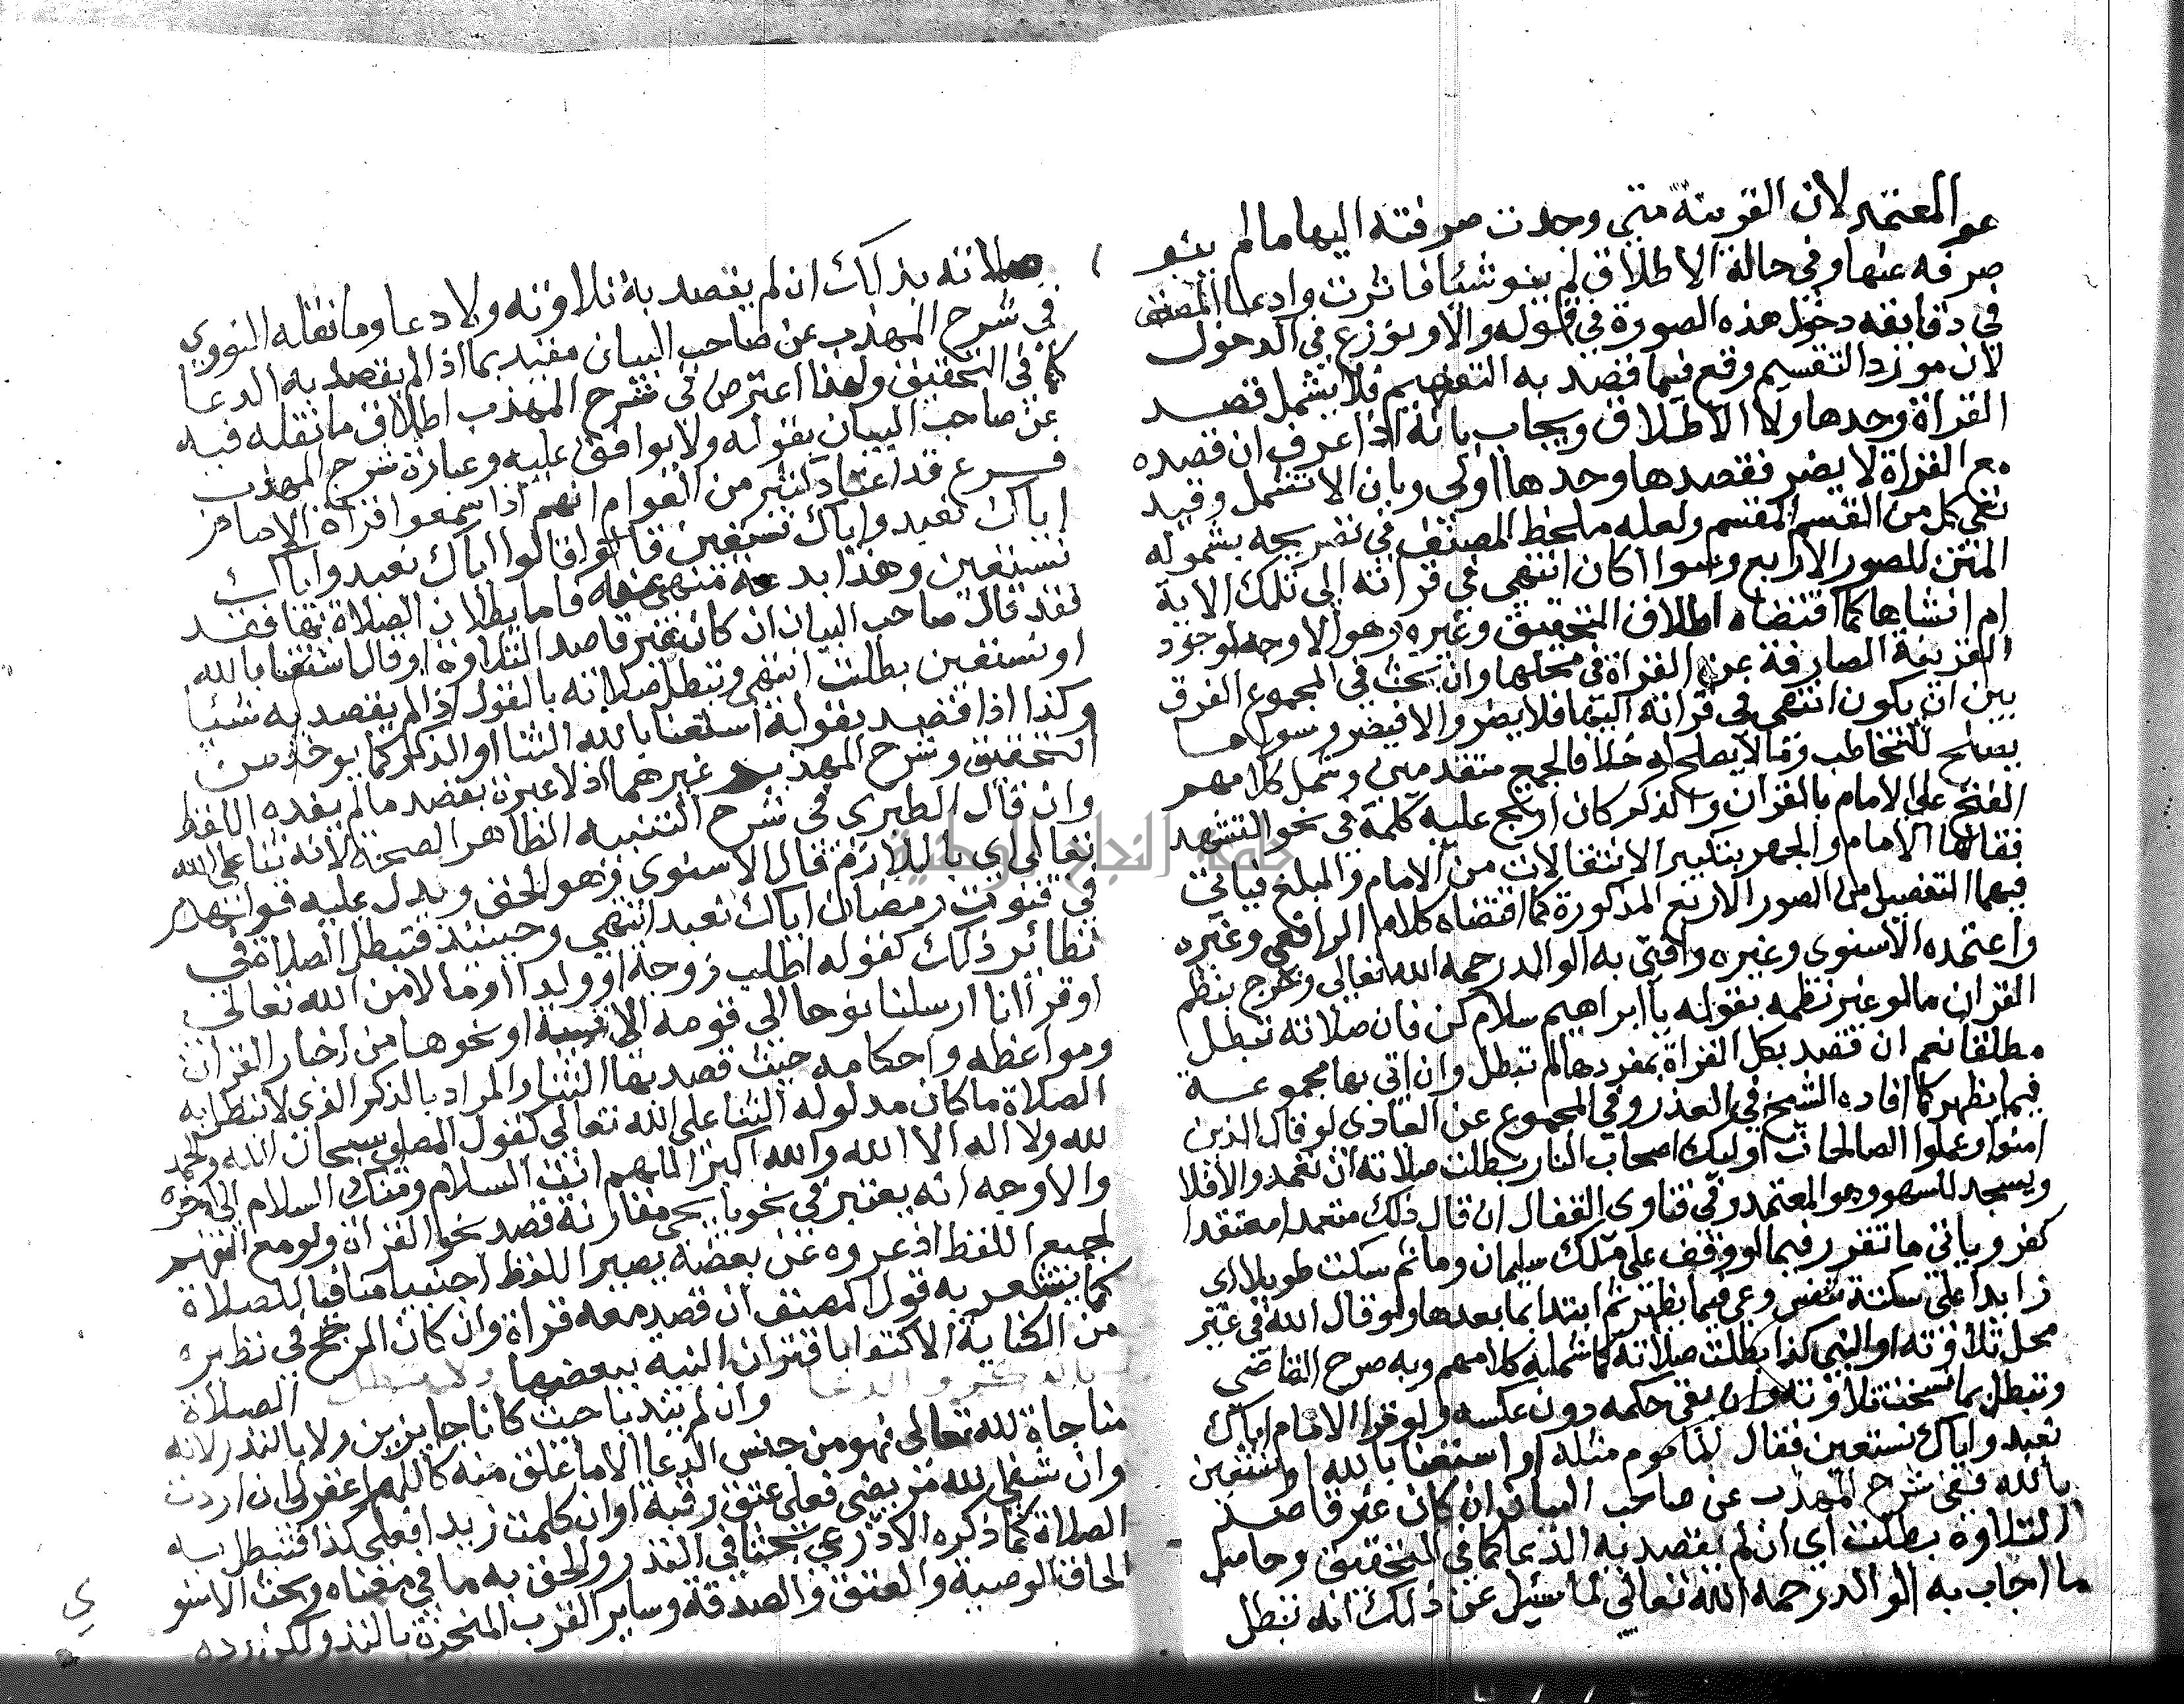 عو المعتمد لان القرينة متى وجدت صرفته اليها مالم ينو
صرفه عنها وفي حالة الاطلاق لم ينو شيئا فاثرت وادعا المصنف
في دقايقه دخول هذه الصورة في قوله والا ونوزع في الدخول
لان مورد التقسيم وقع فيما قصد به التفهيم فلا يشمل قصد
القراة وحدها ولا الاطلاق ويجاب بانه اذا عرف ان قصده
مع القراة لا يضر فقصدها وحدها اولى وبان الا تشمل وقيد
نفي كل من القسم المقسم ولعله ملحظ المصنف في تصريحه بشموله
المتن للصور الاربع وسوا اكان انتهى في قراته الى تلك الاية
ام انشاها كما اقتضاه اطلاق التحقيق وغيره وهو الاوجه لوجود
القرينة الصارفة عن القراة في محلها وان بحث في المجموع الفرق
بين ان يكون انتهى في قراته اليها فلا يضر والا فيضر وسوا ما
يصلح للتخاطب وما لا يصلح له خلافا لجمع متقدمين وشمل كلامهم
الفتح على الامام بالقران والذكر كان ارتج عليه كلمة في نحو التشهد
فقالها الامام والجهر بتكبير الانتقالات من الامام والمبلغ فياتي
فيهما التفصيل من الصور الاربع المذكورة كما اقتضاه كلام الرافعي وغيره
واعتمده الاسنوي وغيره وافتى به الوالد رحمه الله تعالى وخرج بنظم
القران مالو غير نظمه بقوله يا ابراهيم سلام كن فان صلاته تبطل
مطلقا نعم ان قصد بكل القراة بمفردها لم تبطل وان اتى بها مجموعة
فيما يظهر كما افاده الشيخ في العذر وفي المجموع عن العبادي لو قال الذين
امنوا وعملوا الصالحات اوليك اصحاب النار بطلت صلاته ان تعمد والا فلا
ويسجد للسهو وهو المعتمد وفي فتاوى القفال ان قال ذلك متعمدا معتقدا
كفر وياتي ما تقرر فيما لو وقف على ملك سليمان وما ثم سكت طويلا اي
زايدا على سكتة تنفس وعي فيما يظهر ثم ابتدا بما بعدها ولو قال الله في غير
محل تلاوته او النبي كذا بطلت صلاته كما شمله كلامهم وبه صرح القاضي
وتبطل بما نسخت تلاوته وان بقي حكمه دون عكسه ولو قرا الامام اياك
نعبد واياك نستعين فقال الماموم مثله او استعنا بالله او نستعين
بالله ففي شرح المهذب عن صاحب البيان ان كان غير قاصد
التلاوة بطلت اي ان لم يقصد به الدعا كما في التحقيق وحاصل
ما اجاب به الوالد رحمه الله تعالى لما سئل عن ذلك انه تبطل
صلاته بذلك ان لم يقصد به تلاوته ولا دعا وما نقله النووي
في شرح المهذب عن صاحب البيان مقيد بما اذا لم يقصد به الدعا
كما في التحقيق ولهذا اعترض في شرح المهذب اطلاق ما نقله فيه
عن صاحب البيان بقوله ولا يوافق عليه وعبارة شرح المهذب
فرع قد اعتاد كثير من العوام انهم اذا سمعوا قراة الامام
اياك نعبد واياك نستعين قالوا اياك نعبد واياك
نستعين وهذا بدعة منهي عنها فاما بطلان الصلاة بها فقد
فقد قال صاحب البيان ان كان غير قاصد التلاوة او قال استعنا بالله
او نستعين بطلت انتهى وتبطل صلاته بالقول اذا لم يقصد به شيئا
وكذا اذا قصد بقوله استعنا بالله الثنا او الذكر كما يوخذ من
التحقيق وشرح المهذب وغيرهما اذ لا عبرة بقصد ما لم يفده اللفظ
وان قال الطبري في شرح التنبيه الظاهر الصحة لانه ثنا على الله
تعالى اي باللازم قال الاسنوي وهو الحق ويدل عليه قولهم
في قنوت رمضان اياك نعبد انتهى وحينئذ فتبطل الصلاة في
نظائر ذلك كقوله اطلب زوجة او ولدا او مالا من الله تعالى
او قرا انا ارسلنا نوحا الى قومه الاية او نحوها من اخبار القران
ومواعظه واحكامه حيث قصد بها الثنا والمراد بالذكر الذي لا تبطل به
الصلاة ما كان مدلوله الثنا على الله تعالى كقول المصلي سبحان الله والحمد
لله ولا اله الا الله والله اكبر اللهم انت السلام ومنك السلام الى اخره
والاوجه انه يعتبر في نحو يا يحيى مقارنة قصد نحو القران ولو مع التفهم
لجميع اللفظ اذ عروه عن بعضه يصير اللفظ اجنبيا منافيا للصلاة
كما يشعر به قول المصنف ان قصد معه قراة وان كان المرجح في نظيره
من الكناية الاكتفا باقتران النية ببعضها ولا تبطل الصلاة
بالذكر والدعا وان لم يندبا حيث كانا جايزين ولا بالنذر لانه
مناجاة لله تعالى فهو من جنس الدعا الا ما علق منه كاللهم اغفر لي ان اردت
وان شفى الله مريضي فعلي عتق رقبة او ان كلمت زيدا فعلي كذا فتبطل به
الصلاة كما ذكره الاذرعي بحثا في النذر والحق به ما في معناه وبحث الاسنو
ي
الحاق الوصية والعتق والصدقة وساير القرب المنجزة بالنذر ولكن رده
جامعة النجاح الوطنية